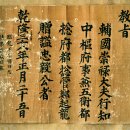 教旨
輔國崇祿大夫行知
中樞府事兼五衛都
摠府都摠管鄭起龍
贈諡忠毅公者
乾隆三十八年正月二十五日